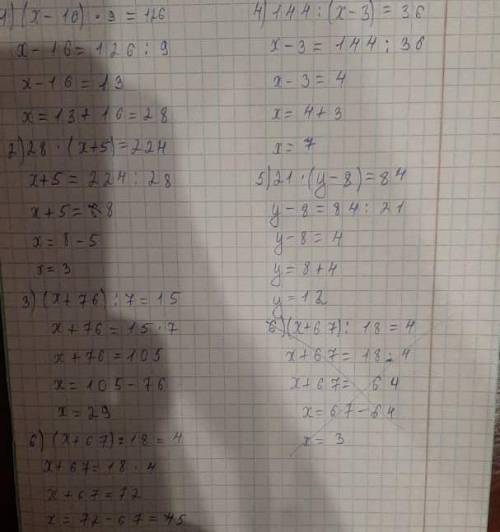 1) (x-16) · 9 = 126
x-16 = 126 : 9
x-16 = 13
x = 13 + 16 = 28
2) 28 · (x+5) = 224
x+5 = 224 : 28
x+5 = 8
x = 8 - 5
x = 3
3) (x+76) : 7 = 15
x+76 = 15 · 7
x+76 = 105
x = 105 - 76
x = 29
6) (x+67) = 18 = 4
x+67 = 18 · 4
x+67 = 72
x = 72 - 67 = 45
4) 144 : (x-3) = 36
x-3 = 144 : 36
x-3 = 4
x = 4 + 3
x = 7
5) 21 · (y-8) = 84
y-8 = 84 : 21
y-8 = 4
y = 8 + 4
y = 12
6) (x+67) : 18 = 4
x+67 = 18 · 4
x+67 = 64
x = 67 - 64
x = 3